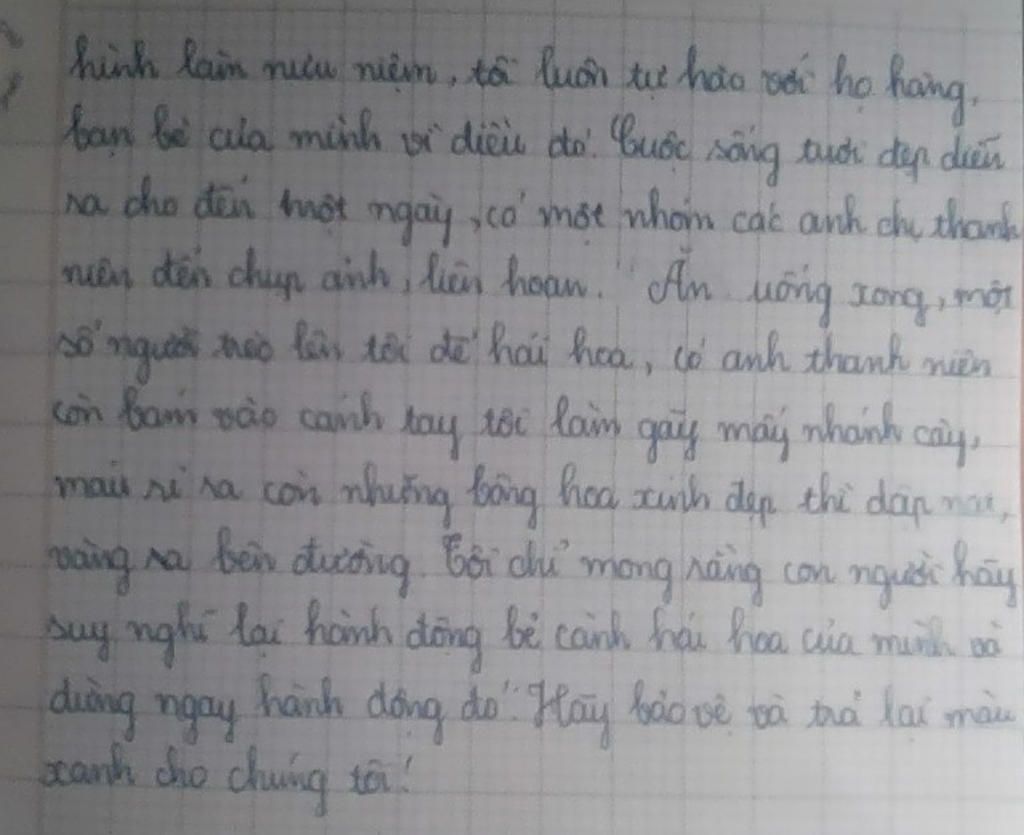 hình làm niệm, tôi luôn tự hào với họ hàng,
bạn bè của mình vì điều đó. Cuộc sống tươi đẹp diễn
ra cho đến một ngày, có một nhóm các anh chị thanh
niên đến chụp ảnh, liên hoan. Ăn uống xong, một
số người trèo lên tôi để hái hoa, có anh thanh niên
còn bám vào cánh tay tôi làm gãy mấy nhánh cây,
máu rỉ ra còn những bông hoa xinh đẹp thì dập nát,
văng ra bên đường. Tôi chỉ mong rằng con người hãy
suy nghĩ lại hành động bẻ cành hái hoa của mình và
dừng ngay hành động đó! Hãy bảo vệ và trả lại màu
xanh cho chúng tôi!